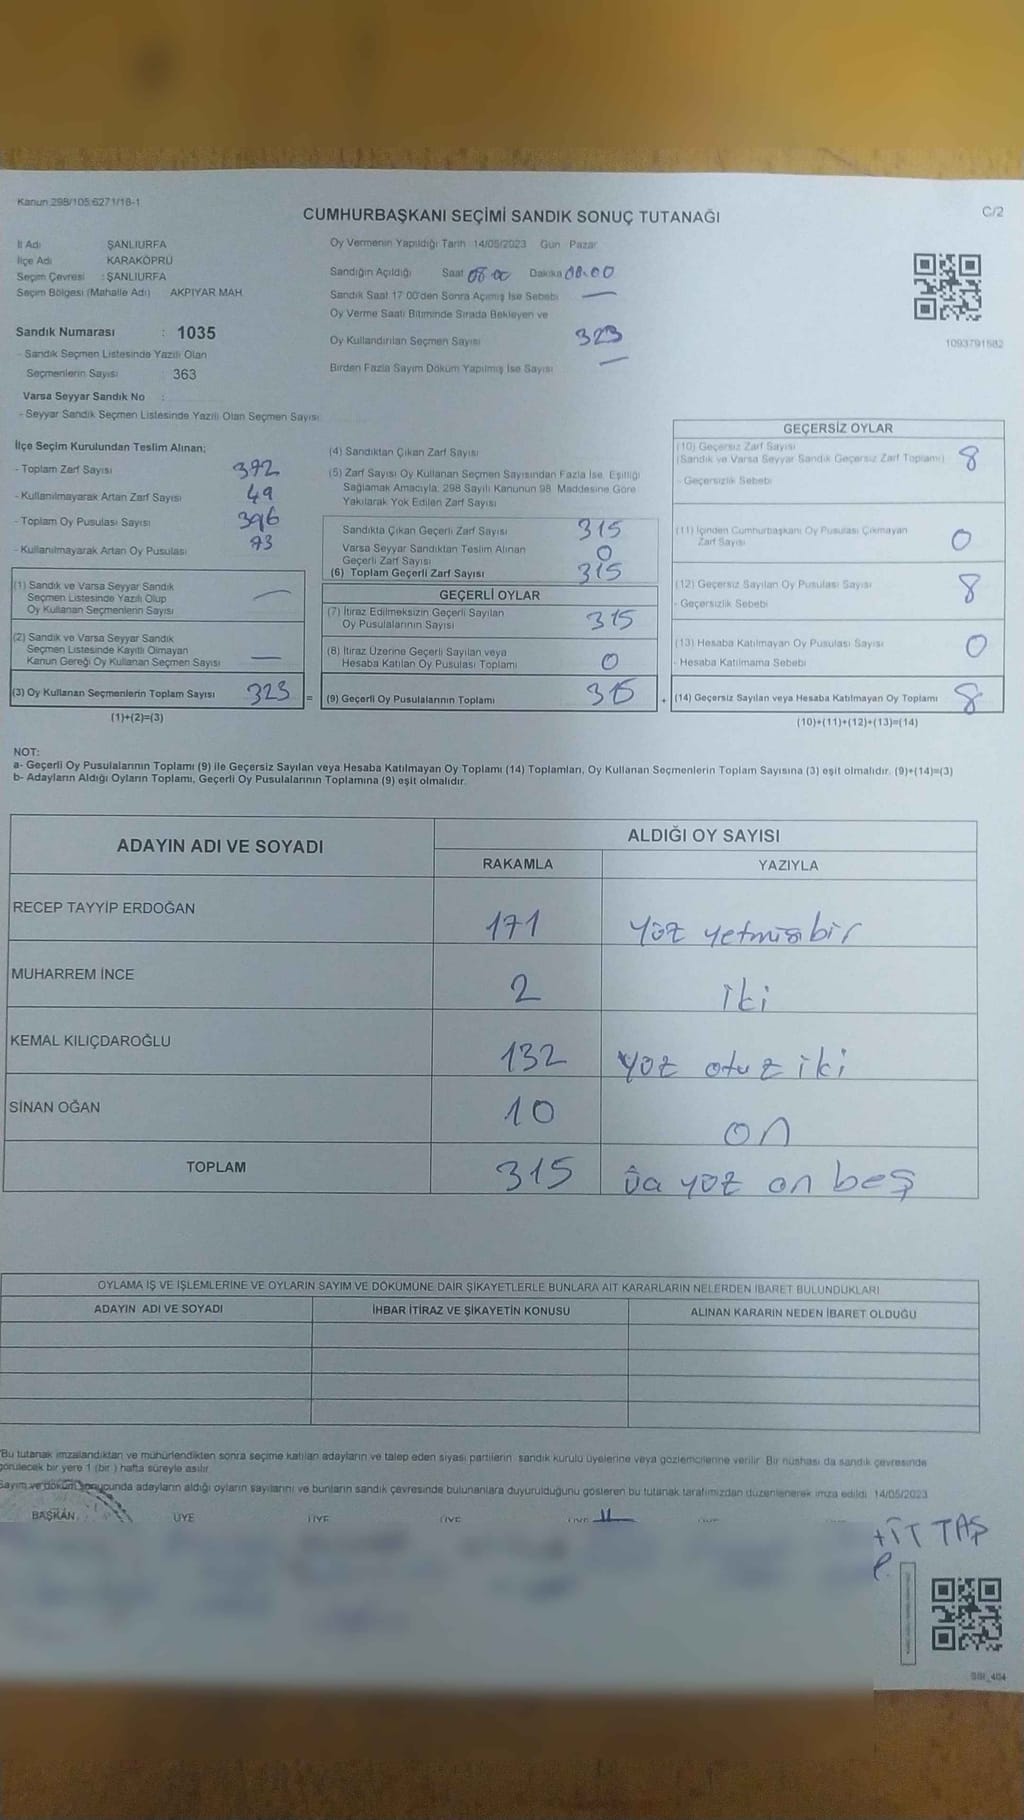 Kanun 298/105 6271/18-1
C/2
CUMHURBAŞKANI SEÇİMİ SANDIK SONUÇ TUTANAĞI
İl Adı ŞANLIURFA
İlçe Adı KARAKÖPRÜ
Seçim Çevresi : ŞANLIURFA
Seçim Bölgesi (Mahalle Adı) AKPIYAR MAH.
Sandık Numarası : 1035
- Sandık Seçmen Listesinde Yazılı Olan
Seçmenlerin Sayısı : 363
Varsa Seyyar Sandık No :
- Seyyar Sandık Seçmen Listesinde Yazılı Olan Seçmen Sayısı
Oy Vermenin Yapıldığı Tarih 14/05/2023 Gün Pazar
Sandığın Açıldığı Saat 08:00 Dakika 00:00
Sandık Saat 17 00'den Sonra Açımış İse Sebebi —
Oy Verme Saati Bitiminde Sırada Bekleyen ve
Oy Kullandırılan Seçmen Sayısı 323
Birden Fazla Sayım Döküm Yapılmış İse Sayısı —
1093791582
İlçe Seçim Kurulundan Teslim Alınan;
- Toplam Zarf Sayısı 372
- Kullanılmayarak Artan Zarf Sayısı 49
- Toplam Oy Pusulası Sayısı 396
- Kullanılmayarak Artan Oy Pusulası 73
(1) Sandık ve Varsa Seyyar Sandık
Seçmen Listesinde Yazılı Olup
Oy Kullanan Seçmenlerin Sayısı —
(2) Sandık ve Varsa Seyyar Sandık
Seçmen Listesinde Kayıtlı Olmayan
Kanun Gereği Oy Kullanan Seçmen Sayısı —
(3) Oy Kullanan Seçmenlerin Toplam Sayısı 323 =
(1)+(2)=(3)
(4) Sandıktan Çıkan Zarf Sayısı
(5) Zarf Sayısı Oy Kullanan Seçmen Sayısından Fazla İse, Eşitliği
Sağlamak Amacıyla, 298 Sayılı Kanunun 98. Maddesine Göre
Yakılarak Yok Edilen Zarf Sayısı
Sandıkta Çıkan Geçerli Zarf Sayısı 315
Varsa Seyyar Sandıktan Teslim Alınan
Geçerli Zarf Sayısı 0
(6) Toplam Geçerli Zarf Sayısı 315
GEÇERLİ OYLAR
(7) İtiraz Edilmeksizin Geçerli Sayılan
Oy Pusulalarının Sayısı 315
(8) İtiraz Üzerine Geçerli Sayılan veya
Hesaba Katılan Oy Pusulası Toplamı 0
(9) Geçerli Oy Pusulalarının Toplamı 315 +
GEÇERSİZ OYLAR
(10) Geçersiz Zarf Sayısı
(Sandık ve Varsa Seyyar Sandık Geçersiz Zarf Toplamı) 8
- Geçersizlik Sebebi
(11) İçinden Cumhurbaşkanı Oy Pusulası Çıkmayan
Zarf Sayısı 0
(12) Geçersiz Sayılan Oy Pusulası Sayısı 8
- Geçersizlik Sebebi
(13) Hesaba Katılmayan Oy Pusulası Sayısı 0
- Hesaba Katılmama Sebebi
(14) Geçersiz Sayılan veya Hesaba Katılmayan Oy Toplamı 8
(10)+(11)+(12)+(13)=(14)
NOT:
a- Geçerli Oy Pusulalarının Toplamı (9) ile Geçersiz Sayılan veya Hesaba Katılmayan Oy Toplamı (14) Toplamları, Oy Kullanan Seçmenlerin Toplam Sayısına (3) eşit olmalıdır. (9)+(14)=(3)
b- Adayların Aldığı Oyların Toplamı, Geçerli Oy Pusulalarının Toplamına (9) eşit olmalıdır.
ADAYIN ADI VE SOYADI
ALDIĞI OY SAYISI
RAKAMLA YAZIYLA
RECEP TAYYİP ERDOĞAN 171 yüz yetmiş bir
MUHARREM İNCE 2 iki
KEMAL KILIÇDAROĞLU 132 yüz otuz iki
SİNAN OĞAN 10 on
TOPLAM 315 üç yüz on beş
OYLAMA İŞ VE İŞLEMLERİNE VE OYLARIN SAYIM VE DÖKÜMÜNE DAİR ŞİKAYETLERLE BUNLARA AİT KARARLARIN NELERDEN İBARET BULUNDUKLARI
ADAYIN ADI VE SOYADI İHBAR İTİRAZ VE ŞİKAYETİN KONUSU ALINAN KARARIN NEDEN İBARET OLDUĞU
*Bu tutanak imzalandıktan ve mühürlendikten sonra seçime katılan adayların ve talep eden siyasi partilerin sandık kurulu üyelerine veya gözlemcilerine verilir. Bir nüshası da sandık çevresinde
görülecek bir yere 1 (bir ) hafta süreyle asılır.
Sayım ve döküm sonucunda adayların aldığı oyların sayılarını ve bunların sandık çevresinde bulunanlara duyurulduğunu gösteren bu tutanak tarafımızdan düzenlenerek imza edildi. 14/05/2023
BAŞKAN ÜYE ÜYE ÜYE ÜYE
TAŞ